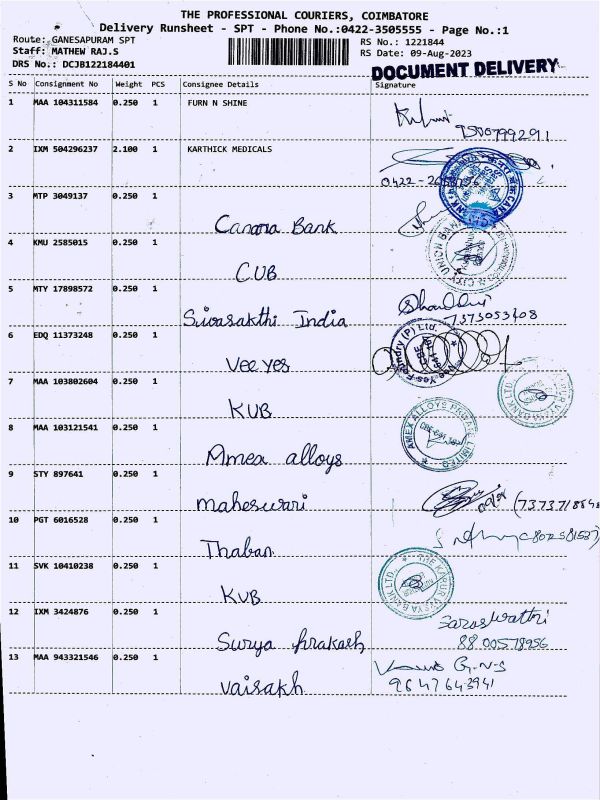 THE PROFESSIONAL COURIERS, COIMBATORE
Delivery Runsheet - SPT - Phone No.:0422-3505555 - Page No.:1
Route: GANESAPURAM SPT
RS No.: 1221844
Staff: MATHEW RAJ.S
RS Date: 09-Aug-2023
DRS No.: DCJB122184401
DOCUMENT DELIVERY
S No Consignment No Weight PCS Consignee Details Signature
1 MAA 104311584 0.250 1 FURN N SHINE
7500799291
2 IXM 504296237 2.100 1 KARTHICK MEDICALS
0422-
3 MTP 3049137 0.250 1
Canara Bank
4 KMU 2585015 0.250 1
CUB
CITY UNION BANK
5 MTY 17898572 0.250 1
Sivasakthi India
7373053408
6 EDQ 11373248 0.250 1
Vee yes
Vee Yes Foundry (P) Ltd.
7 MAA 103802604 0.250 1
KUB
8 MAA 103121541 0.250 1
Amex alloys
AMEX ALLOYS PRIVATE LIMITED
9 STY 897641 0.250 1
maheswari
10 PGT 6016528 0.250 1
Thaban
11 SVK 10410238 0.250 1
KVB
THE KARUR VYSYA BANK LTD.
12 IXM 3424876 0.250 1
Surya Prakash
Saraswathi
8800578956
13 MAA 943321546 0.250 1
Vaisakh
G.N.S
9647643941